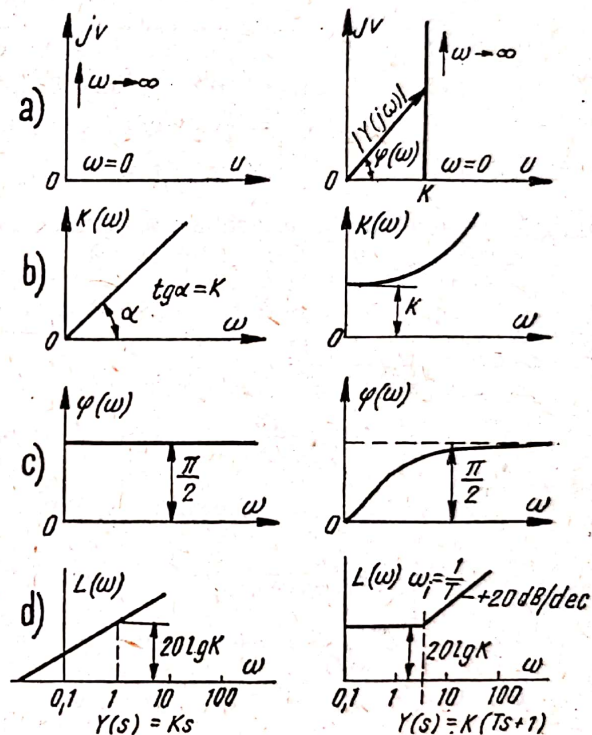 a)
jv
ω→∞
ω=0
υ
0
jv
ω→∞
|Y(jω)|
φ(ω)
ω=0
υ
0
K
b)
K(ω)
tgα=K
α
ω
0
K(ω)
K
ω
0
c)
φ(ω)
π/2
ω
0
φ(ω)
π/2
ω
0
d)
L(ω)
20lgK
ω
0,1 1 10 100
Y(s) = Ks
L(ω) ω₁=1/T
+20 dB/dec
20lgK
ω
0,1 1 10 100
Y(s) = K(Ts+1)